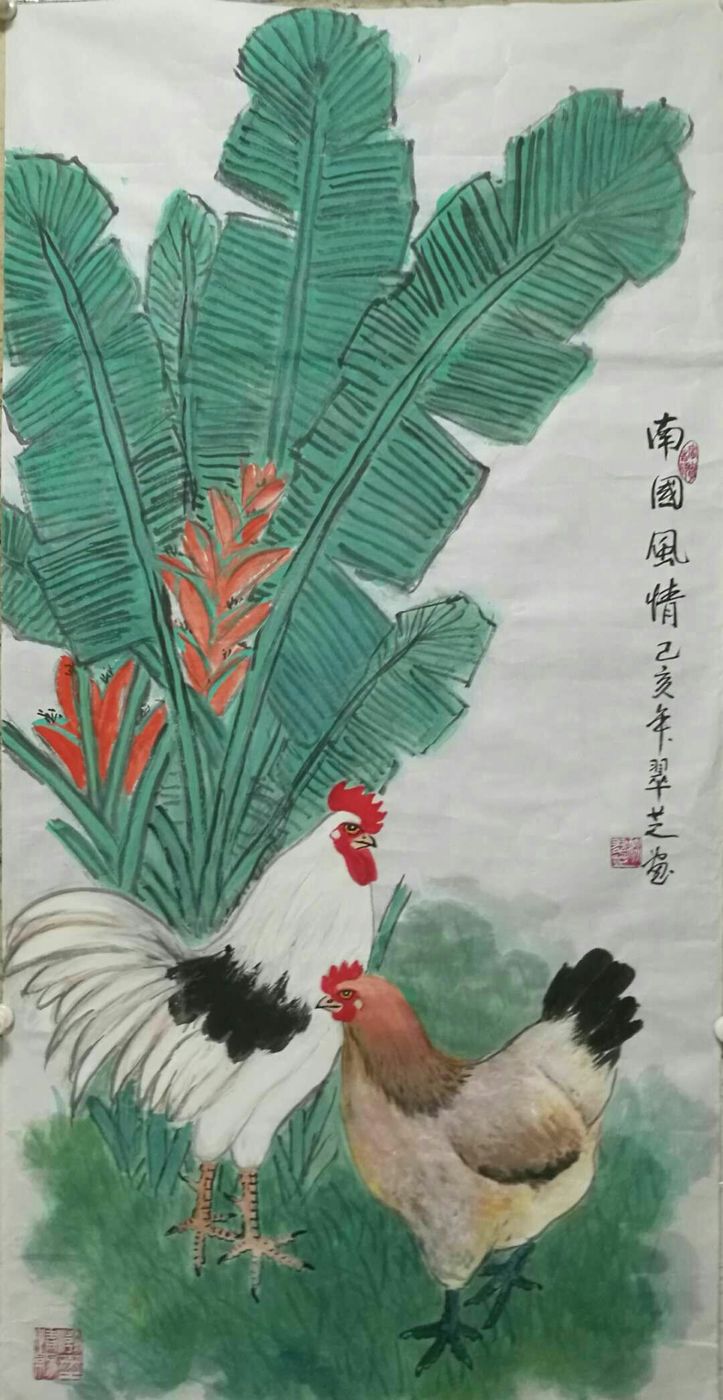 南國風情己亥年翠芝畫